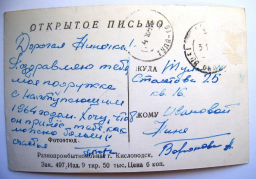 ОТКРЫТОЕ ПИСЬМО
Дорогая Ниночка!
Поздравляю тебя
моя подружка
с наступающим
1964 годом. Хочу, чтоб
он принёс тебе как
можно больше
счастья
КУДА Тула
25
кв 16
КОМУ
Нине
Фотоэтюд
Разнопромбыткомбинат г. Кисловодск.
Зак. 497, Изд. 9 тир. 50 тыс. Цена 6 коп.